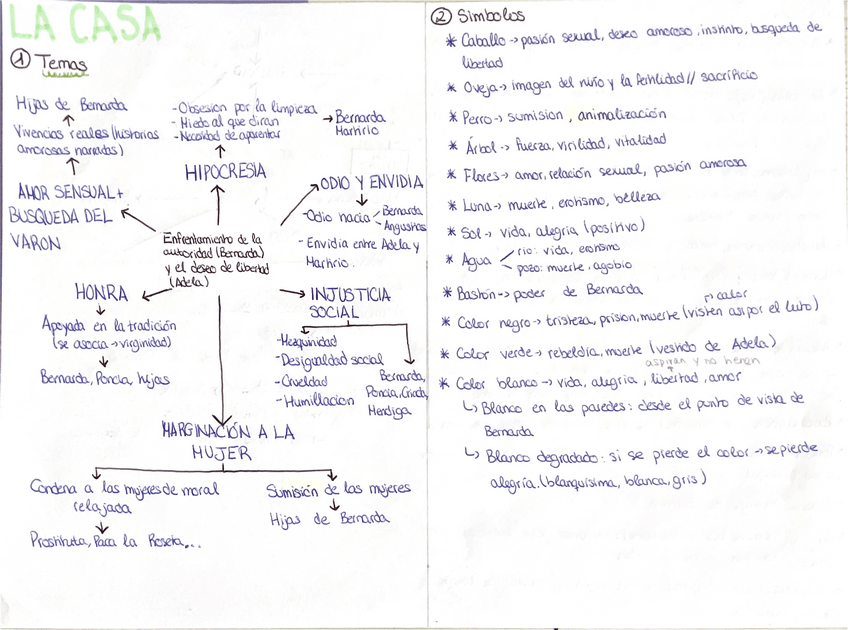 LA CASA
① Temas
Hijas de Bernarda
Vivencias reales (historias
amorosas narradas)
AMOR SENSUAL +
BUSQUEDA DEL
VARON
- Obsesion por la limpieza
- Miedo al que diran
- Necesidad de aparentar
→ Bernarda
Martirio
HIPOCRESIA
ODIO Y ENVIDIA
- Odio hacia
Bernarda
Angustias
- Envidia entre Adela y
Martirio.
Enfrentamiento de la
autoridad (Bernarda)
y el deseo de libertad
(Adela)
HONRA
Apoyada en la tradición
(se asocia → virginidad)
Bernarda, Poncia, hijas
INJUSTICIA
SOCIAL
- Mezquinidad
- Desigualdad social
- Crueldad
- Humillacion
Bernarda,
Poncia, Criada,
Mendiga
MARGINACIÓN A LA
MUJER
Condena a las mujeres de moral
relajada
Prostituta, Paca la Roseta,...
Sumisión de las mujeres
Hijas de Bernarda
② Simbolos
* Caballo → pasión sexual, deseo amoroso, instinto, busqueda de
libertad
* Oveja → imagen del niño y la fertilidad // sacrificio
* Perro → sumision, animalización
* Árbol → fuerza, virilidad, vitalidad
* Flores → amor, relación sexual, pasión amorosa
* Luna → muerte, erotismo, belleza
* Sol → vida, alegria (positivo)
* Agua
rio: vida, erotismo
pozo: muerte, agobio
* Bastón → poder de Bernarda
calor
* Color negro → tristeza, prision, muerte (visten asi por el luto)
* Color verde → rebeldia, muerte (vestido de Adela)
aspiran y no tienen
* Color blanco → vida, alegria, libertad, amor
↳ Blanco en las paredes: desde el punto de vista de
Bernarda
↳ Blanco degradado: si se pierde el color → se pierde
alegria. (blanquisima, blanca, gris)